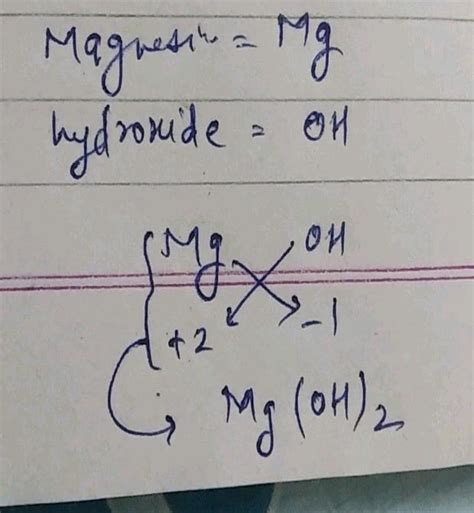 Magnesiu = Mg
hydroxide = OH
Mg OH
+2 -1
Mg(OH)2